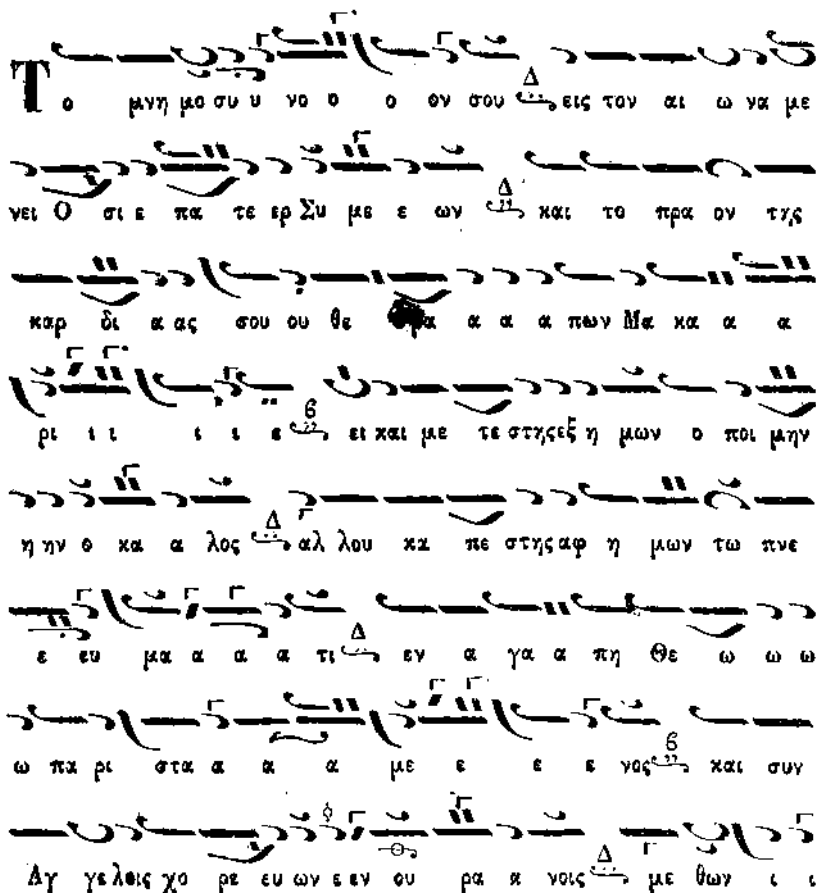 Το μνη μο συ υ νο ο ο ον σου Δ εις τον αι ω να με
νει Ο σι ε πα τε ερ Συ με ε ων Δ και το πρα ον της
καρ δι α ας σου ου θε ρα α α α πων Μα κα α α
ρι ι ι ι ι ε β ει και με τε στης εξ η μων ο ποι μην
η ην ο κα α λος Δ αλ λου κα πε στης αφ η μων τω πνε
ε ευ μα α α α τι Δ εν α γα α πη Θε ω ω ω
ω πα ρι στα α α α με ε ε ε νος β και συν
Αγ γε λοις χο ρε ευ ων ε εν ου ρα α νοις Δ με θων ι ι